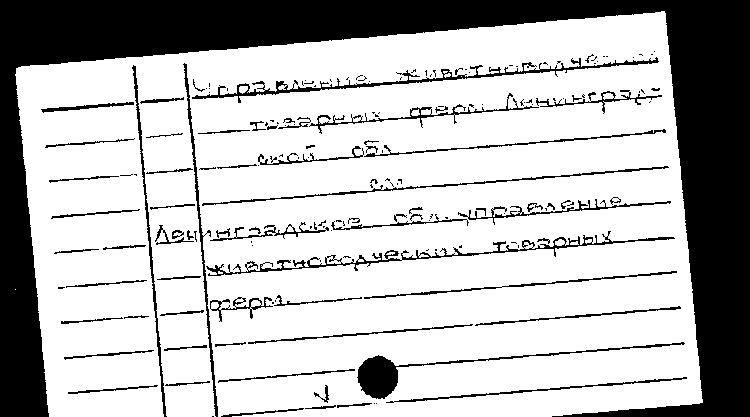 Управление животноводческих
товарных ферм Ленинград-
ской обл
см.
Ленинградское обл. управление
животноводческих товарных
ферм.